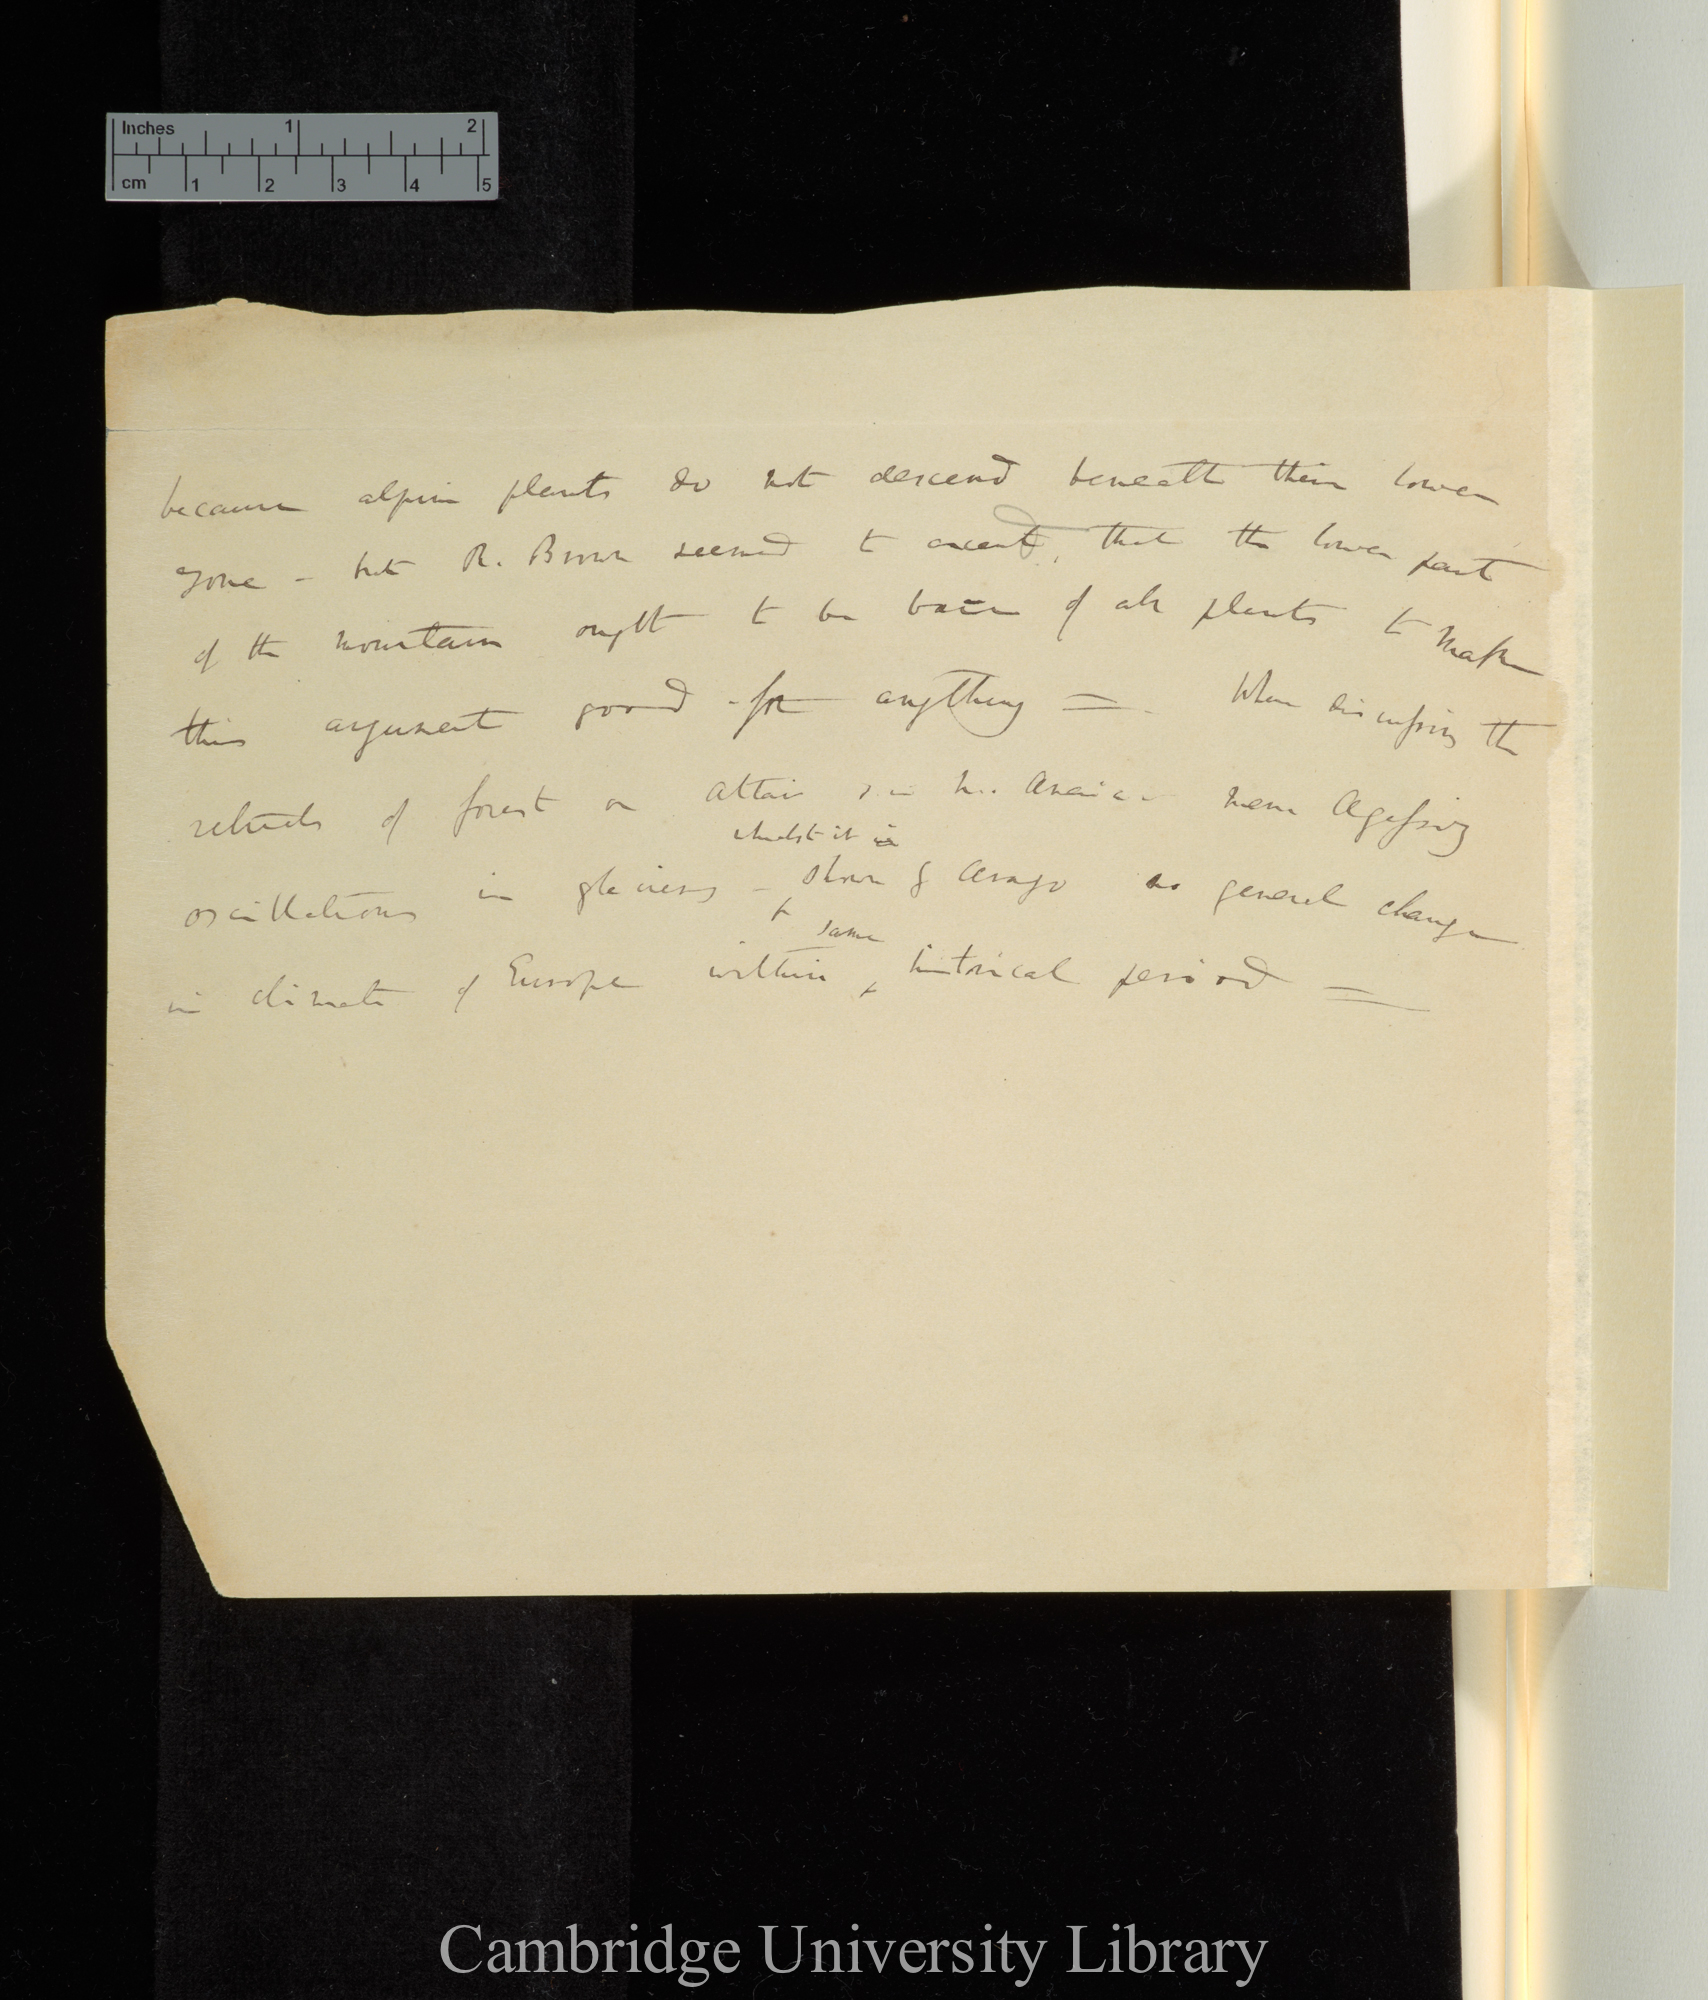 Inches 1 2
cm 1 2 3 4 5
because alpine plants do not descend beneath their lower
zone – but R. Brown seemed to that the lower part
of the mountain ought to be bare of all plants to make
this argument good for anything =. When discussing the
retreats of forest on Altai & in N. America mem Agassiz
whilst it is
oscillations in glaciers – shown by Arago no general change
same
in climate of Europe within historical period =
Cambridge University Library